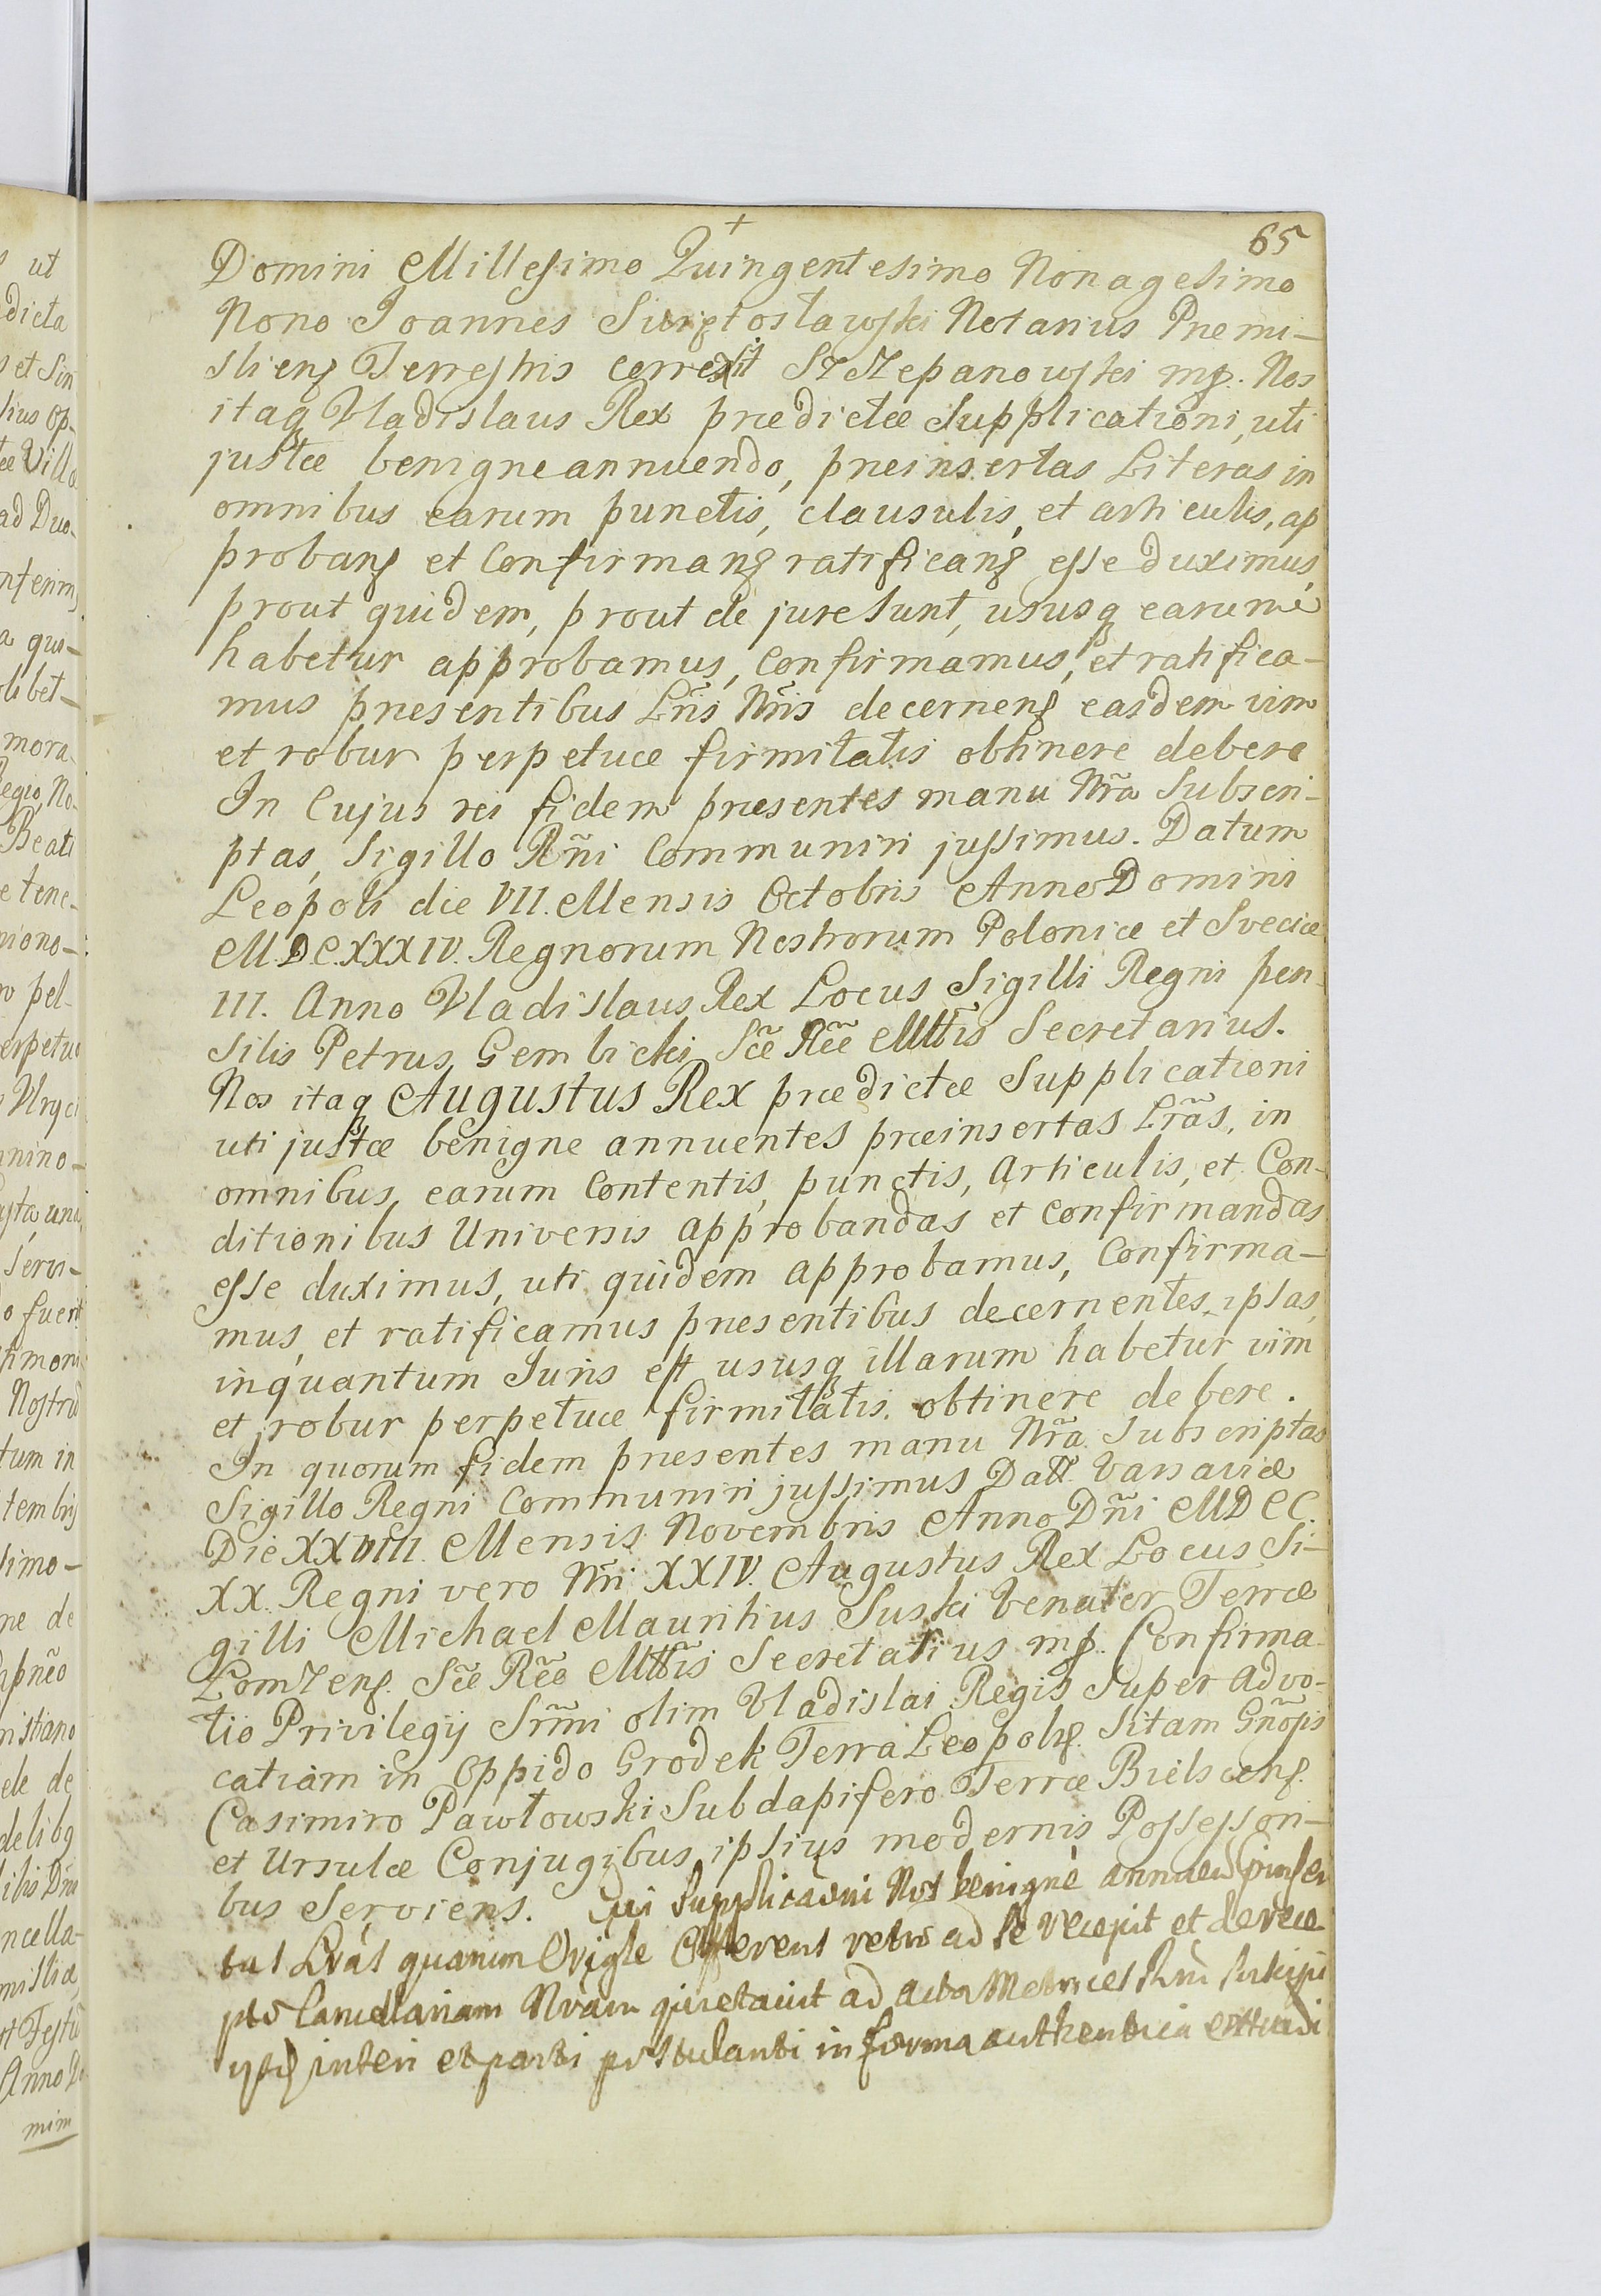 65
Domini Millesimo Quingentesimo Nonagesimo
Nono Joannes Swiętosławski Notarius Præmi-
sliens Terrestris correxit Szczepanowski mp. Nos
itaq Vladislaus Rex prædictæ Supplicationi, uti
justæ benigne annuendo, præinsertas Literas in
omnibus earum punctis, clausulis, et articulis, ap
probans et Confirmans ratificans esse duximus,
prout quidem, prout de jure sunt, ususq earum
habetur approbamus, Confirmamus, et ratifica-
mus præsentibus Lr̃is Nr̃is decernens easdem vim
et robur perpetuæ firmitatis obtinere debere
In Cujus rei fidem præsentes manu Nr̃a Subscri-
ptas, Sigillo Rñi Communiri jussimus. Datum
Leopoli die VII. Mensis Octobris Anno Domini
M.D.C.XXXIV. Regnorum Nostrorum Poloniæ et Sveciæ
III. Anno Vladislaus Rex Locus Sigilli Regni pen-
silis Petrus Gembicki Scæ Rcæ Mttis Secretarius.
Nos itaq Augustus Rex prædictæ Supplicationi
uti justæ benigne annuentes præinsertas Lr̃as, in
omnibus earum Contentis, punctis, Articulis, et Con-
ditionibus Universis approbandas et Confirmandas
esse duximus, uti quidem approbamus, Confirma-
mus, et ratificamus præsentibus decernentes ipsas,
inquantum Juris est ususq illarum habetur vim
et robur perpetuæ firmitatis obtinere debere.
In quorum fidem præsentes manu Nr̃a Subscriptas
Sigillo Regni Communiri jussimus Datt Varsaviæ
Die XXVIII. Mensis Novembris Anno Dñi MDCC.
XX. Regni vero Nr̃i XXIV. Augustus Rex Locus Si-
gilli Michael Mauritius Suski Venator Terræ
Lomzens. Scæ Rcæ Mttis Secretarius mp. Confirma-
tio Privilegij Srm̃i olim Vladislai Regis Super Advo-
catiam in Oppido Grodek Terra Leopols. Sitam Gñosis
Casimiro Pawłowski Subdapifero Terræ Bielscens.
et Ursulæ Conjugibus ipsius modernis Possessori-
bus Serviens. Cui Supplicaõni Nos benigne annuen pinser
tas Lr̃as quarum Origle Offerens retro ad se recepit et de rece
pto Cancellariam Nr̃am quietavit ad acta Metrices Rñi suscipi
ijsq inseri et parti postulanti in forma authentica extradi